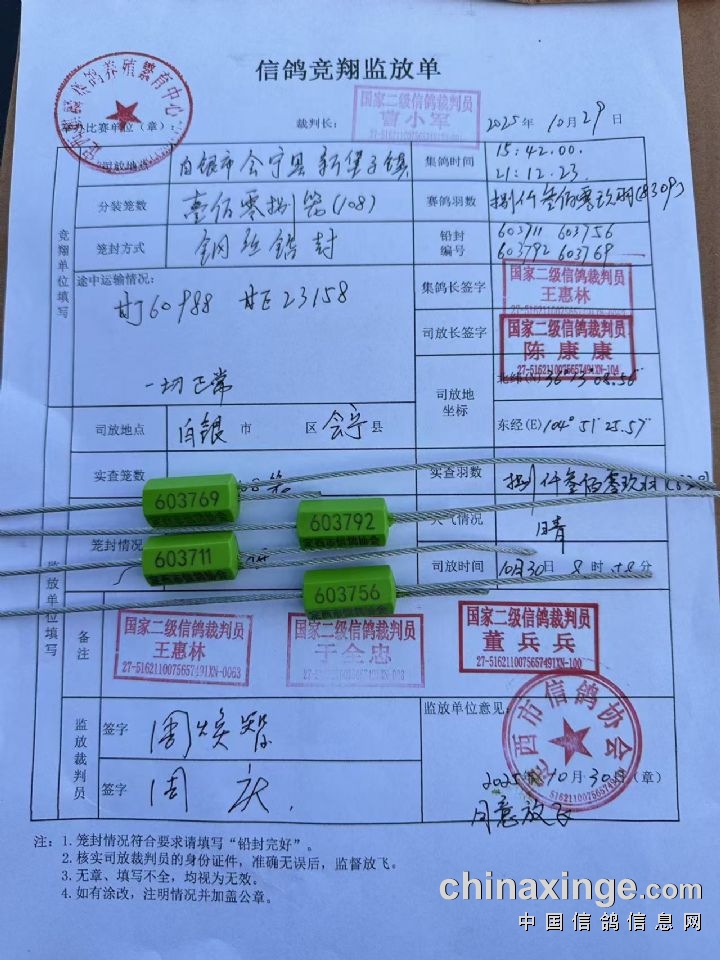 信鸽竞翔监放单
信鸽养殖繁育中心
举办比赛单位（章）：
裁判长：
国家二级信鸽裁判员
曹小军
2025年10月29日
竞翔单位填写
司放地点
白银市会宁县新堡子镇
集鸽时间
15:42.00.
21:12.23.
分装笼数
壹佰零捌笼(108)
赛鸽羽数
捌仟叁佰零玖羽(8309)
笼封方式
钢丝铅封
铅封编号
603711 603756
603792 603769
途中运输情况:
甘J60988 甘E23158
一切正常
集鸽长签字
国家二级信鸽裁判员
王惠林
司放长签字
国家二级信鸽裁判员
陈康康
27-5162110075657491XN-104
司放地坐标
北纬(N)
东经(E) 104°51'25.57"
监放单位填写
司放地点
白银市 区 会宁县
实查笼数
实查羽数
捌仟叁佰零玖羽
笼封情况
天气情况
晴
司放时间
10月30日8时58分
603769
603792
603711
603756
备注
国家二级信鸽裁判员
王惠林
27-5162110075657491XN-0063
国家二级信鸽裁判员
于全忠
国家二级信鸽裁判员
董兵兵
27-5162110075657491XN-100
监放裁判员
签字
周焕智
签字
周庆
监放单位意见:
西市信鸽协会
2025年10月30日（章）
同意放飞
注：1. 笼封情况符合要求请填写“铅封完好”。
2. 核实司放裁判员的身份证件，准确无误后，监督放飞。
3. 无章、填写不全，均视为无效。
4. 如有涂改，注明情况并加盖公章。
chinaxinge.com
中国信鸽信息网